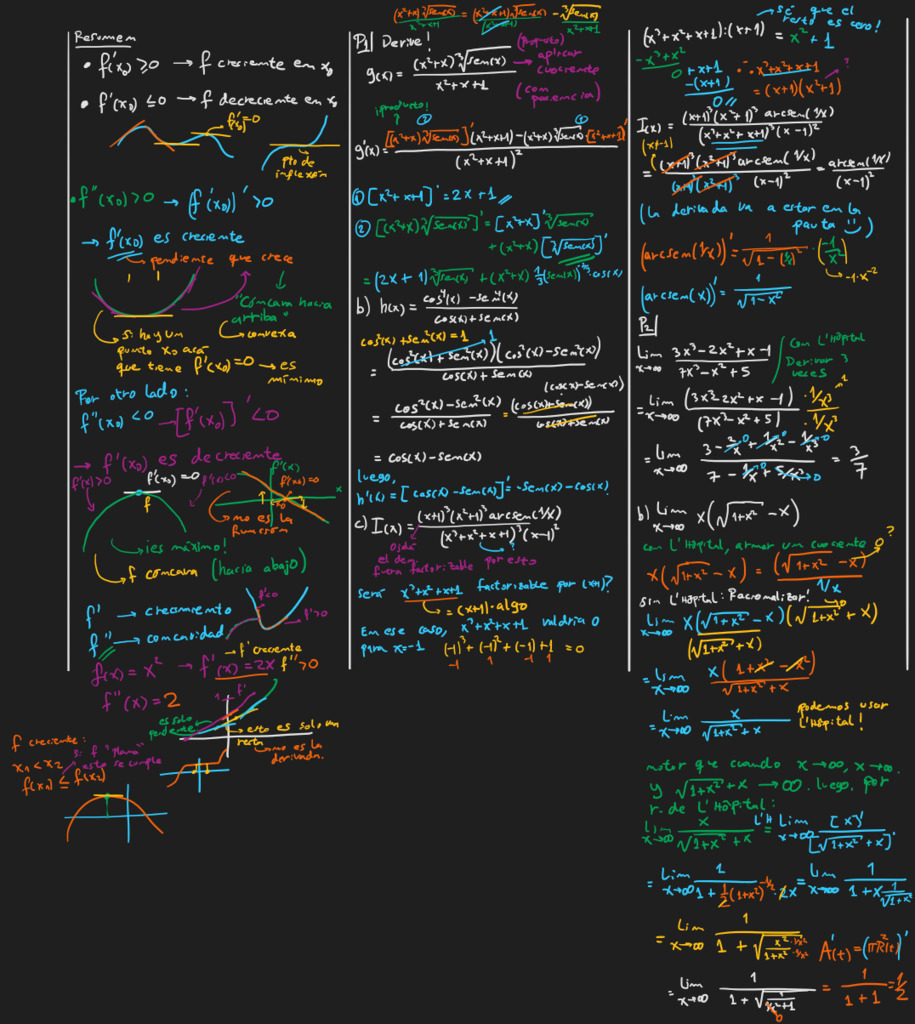 Resumen
• f'(x₀) ≥ 0 → f creciente en x₀
• f'(x₀) ≤ 0 → f decreciente en x₀
f'(x₀)=0
pto de
inflexión
• f''(x₀) > 0 → (f'(x₀))' > 0
→ f'(x₀) es creciente
pendiente que crece
"Cóncava hacia
arriba"
convexa
si hay un
punto x₀ acá
que tiene f'(x₀)=0 → es
mínimo
Por otro lado:
f''(x₀) < 0 → [f'(x₀)]' < 0
→ f'(x₀) es decreciente
f'(x)>0
f'(x₀)=0
f'(x)<0
f
f'(x)
f'(x₀)=0
x₀
x
no es la
función
¡es máximo!
f cóncava (hacia abajo)
f' → crecimiento
f'' → concavidad
f'<0
f'>0
f' creciente
f(x) = x² → f'(x) = 2x f''>0
f''(x) = 2
f'
es solo
pendiente
esto es solo una
recta
no es la
derivada.
f creciente:
x₁ < x₂
f(x₁) ≤ f(x₂)
si f "plana"
esto se cumple
(x²+x)∛sen(x) / x²+x+1 = (x²+x+1)∛sen(x) / x²+x+1 − ∛sen(x) / x²+x+1
P1| Derive!
g(x) = (x²+x)∛sen(x) / x²+x+1
(producto)
→ aplicar
cuociente
(com
potencia)
¡producto!
?
② ①
g'(x) = [(x²+x)∛sen(x)]'(x²+x+1) − (x²+x)∛sen(x)·[x²+x+1]' / (x²+x+1)²
① [x²+x+1]' = 2x+1 //
② [(x²+x)∛sen(x)]' = [x²+x]'∛sen(x)
+ (x²+x)[∛sen(x)]'
= (2x+1)∛sen(x) + (x²+x) 1/3 (sen(x))^(-2/3) · cos(x)
b) h(x) = cos⁴(x) − sen⁴(x) / cos(x) + sen(x)
cos²(x) + sen²(x) = 1
1
= (cos²(x) + sen²(x))(cos²(x) − sen²(x)) / cos(x) + sen(x)
= cos²(x) − sen²(x) / cos(x) + sen(x) = (cos(x) + sen(x))(cos(x) − sen(x)) / cos(x) + sen(x)
= cos(x) − sen(x)
luego,
h'(x) = [cos(x) − sen(x)]' = −sen(x) − cos(x).
c) I(x) = (x+1)³(x²+1)³ arcsen(1/x) / (x³+x²+x+1)³(x−1)²
?
Ojalá
el den
fuera factorizable por esto
será x³+x²+x+1 factorizable por (x+1)?
= (x+1)·algo
En ese caso, x³+x²+x+1 valdría 0
para x=−1 (−1)³ + (−1)² + (−1) + 1 = 0
−1 1 −1 1
sé que el
resto es cero!
(x³+x²+x+1) : (x+1) = x²+1
−x³+x²
0 +x+1
−(x+1)
0 //
∴ x³+x²+x+1
= (x+1)(x²+1)
?
I(x) = (x+1)³(x²+1)³ arcsen(1/x) / (x³+x²+x+1)³(x−1)²
(x+1)
= (x+1)³(x²+1)³ arcsen(1/x) / (x+1)³(x²+1)³ (x−1)² = arcsen(1/x) / (x−1)²
(La derivada va a estar en la
pauta :))
(arcsen(1/x))' = 1 / √(1−(1/x)²) · (−1/x²)
→ −1·x⁻²
(arcsen(x))' = 1 / √(1−x²)
P2|
Lim x→∞ 3x³−2x²+x−1 / 7x³−x²+5
Con L'Hôpital
Derivar 3
veces
= Lim x→∞ (3x³−2x²+x−1) / (7x³−x²+5) · 1/x³ / 1/x³
= Lim x→∞ 3 − 2/x + 1/x² − 1/x³ / 7 − 1/x + 5/x³ = 3/7
b) Lim x→∞ x(√(1+x²) − x)
con L'Hôpital, armar un cuociente
0?
x(√(1+x²) − x) = (√(1+x²) − x) / 1/x
Sin L'Hôpital: Racionalizar!
Lim x→∞ x(√(1+x²) − x)(√(1+x²) + x) / (√(1+x²) + x)
= Lim x→∞ x(1+x² − x²) / √(1+x²) + x
= Lim x→∞ x / √(1+x²) + x
podemos usar
L'Hôpital!
notar que cuando x→∞, x→∞.
y √(1+x²) + x → ∞. Luego, por
r. de L'Hôpital:
Lim x→∞ x / √(1+x²) + x L'H = Lim x→∞ [x]' / [√(1+x²) + x]'
= Lim x→∞ 1 / 1 + 1/2 (1+x²)^(-1/2) · 2x = Lim x→∞ 1 / 1 + x 1/√(1+x²)
= Lim x→∞ 1 / 1 + √(x²/1+x² · 1/x² / 1/x²)
A'(t) = (πR²(t))'
= Lim x→∞ 1 / 1 + √(1 / 1/x²+1) = 1 / 1+1 = 1/2
0